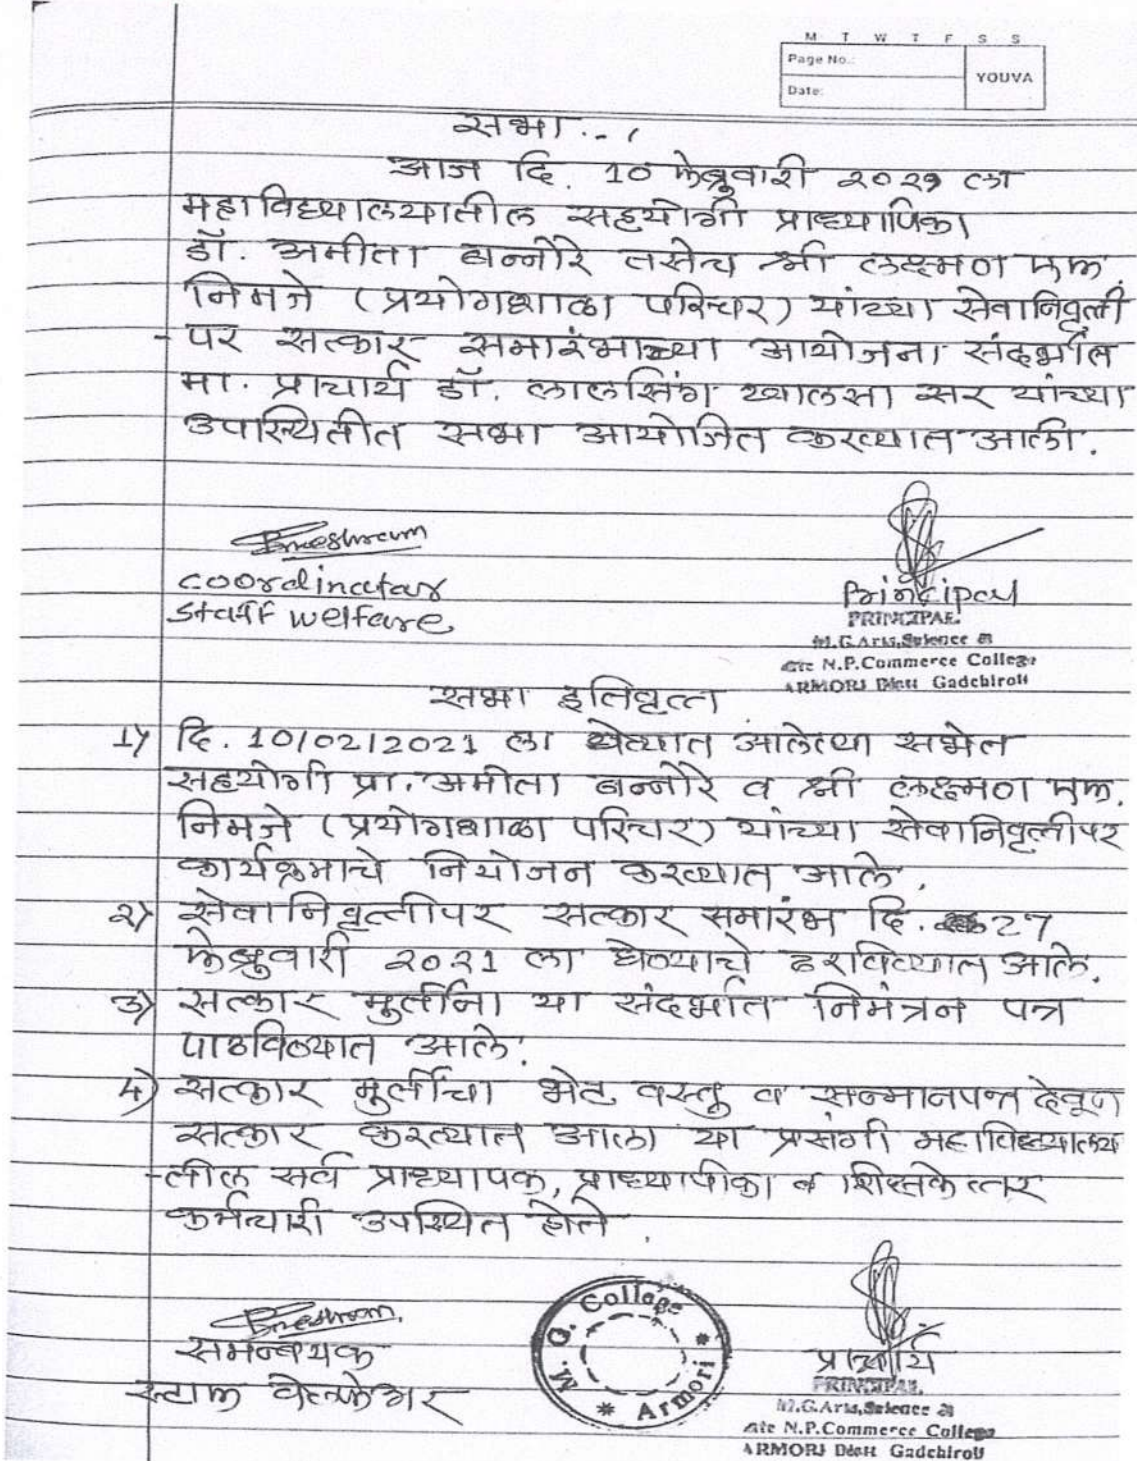 M T W T F S S
Page No.:
YOUVA
Date:
सभा..,
आज दि. 10 फेब्रुवारी २०२१ ला
महाविद्यालयातील सहयोगी प्राध्यापिका
डॉ. अमीता बन्नोरे तसेच श्री लक्ष्मण एल.
निमजे (प्रयोगशाळा परिचर) यांच्या सेवानिवृत्ती
-पर सत्कार समारंभाच्या आयोजना संदर्भात
मा. प्राचार्य डॉ. लालसिंग खालसा सर यांच्या
उपस्थितीत सभा आयोजित करण्यात आली.
coordinator
Principal
staff welfare
PRINCIPAL
M.G.Arts,Science &
Late N.P.Commerce College
ARMORI Distt Gadchiroli
सभा इतिवृत्त
1) दि. 10/02/2021 ला घेण्यात आलेल्या सभेत
सहयोगी प्रा. अमीता बन्नोरे व श्री लक्ष्मण एल.
निमजे (प्रयोगशाळा परिचर) यांच्या सेवानिवृत्तीपर
कार्यक्रमाचे नियोजन करण्यात आले.
२) सेवानिवृत्तीपर सत्कार समारंभ दि. 27
फेब्रुवारी २०२1 ला घेण्याचे ठरविण्यात आले.
३) सत्कार मुर्तीना या संदर्भात निमंत्रन पत्र
पाठविण्यात आले.
4) सत्कार मुर्तीचा भेट वस्तु व सन्मानपत्र देवूण
सत्कार करण्यात आला या प्रसंगी महाविद्यालय
-तील सर्व प्राध्यापक, प्राध्यापीका व शिक्षकेत्तर
कर्मचारी उपस्थित होते.
समन्वयक
स्टाफ वेल्फेअर
M. G. College
* Armori *
प्राचार्य
PRINCIPAL
M.G.Arts,Science &
Late N.P.Commerce College
ARMORI Distt Gadchiroli